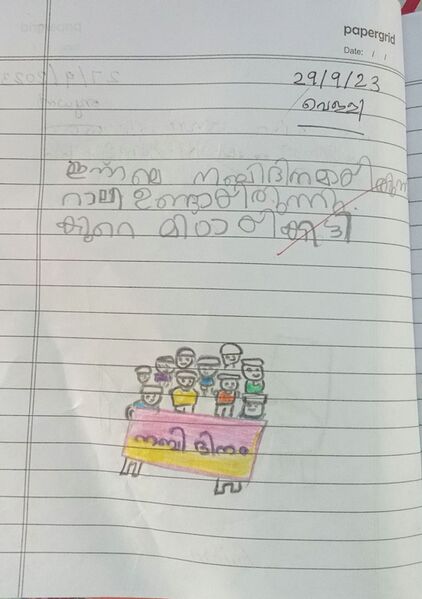 papergrid
Date: / /
29/9/23
വെള്ളി
ഇന്നലെ നബിദിനമായിരുന്നു
റാലി ഉണ്ടായിരുന്നു.
കുറെ മിഠായി കിട്ടി
നബി ദിനം